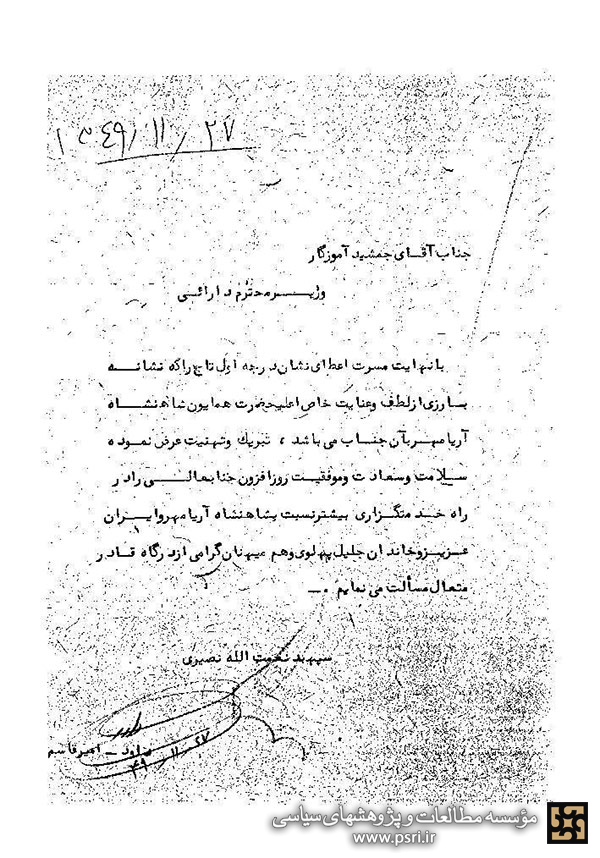 ۱۳۴۹/۱۱/۲۷
جناب آقای جمشید آموزگار
وزیر محترم دارائی
با نهایت مسرت اعطای نشان درجه اول تاج را که نشانه
بارزی از لطف و عنایت خاص اعلیحضرت همایون شاهنشاه
آریامهر بآن جناب می باشد ، تبریک و تهنیت عرض نموده
سلامت و سعادت و موفقیت روزافزون جنابعالی را در
راه خدمتگزاری بیشتر نسبت بشاهنشاه آریامهر و ایران
عزیز و خاندان جلیل پهلوی و هم میهنان گرامی از درگاه قادر
متعال مسألت می نمایم .ـ
سپهبد نعمت الله نصیری
امیرقاسم
۴۹/۱۱/۲۷
مؤسسه مطالعات و پژوهشهای سیاسی
www.psri.ir